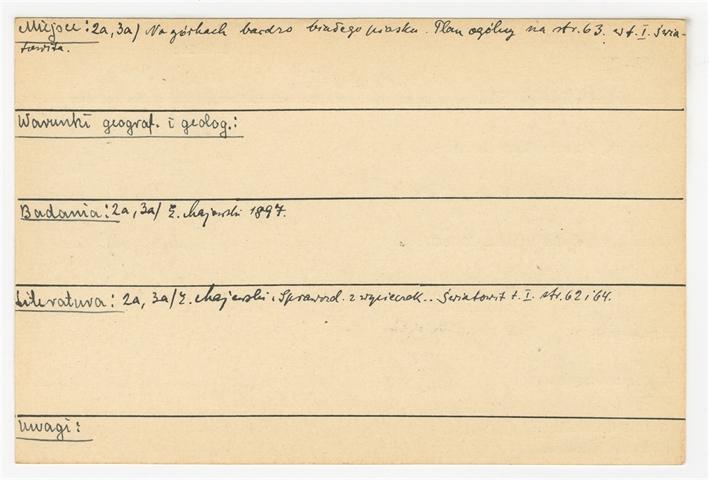 Miejsce: 2a, 3a/ Na górkach bardzo białego piasku. Plan ogólny na str. 63. w t. I. Świa-
towita.
Warunki geograf. i geolog.:
Badania: 2a, 3a/ E. Majewski 1897.
Literatura: 2a, 3a/ E. Majewski, Sprawozd. z wycieczek.. Światowit t. I. str. 62 i 64.
Uwagi: